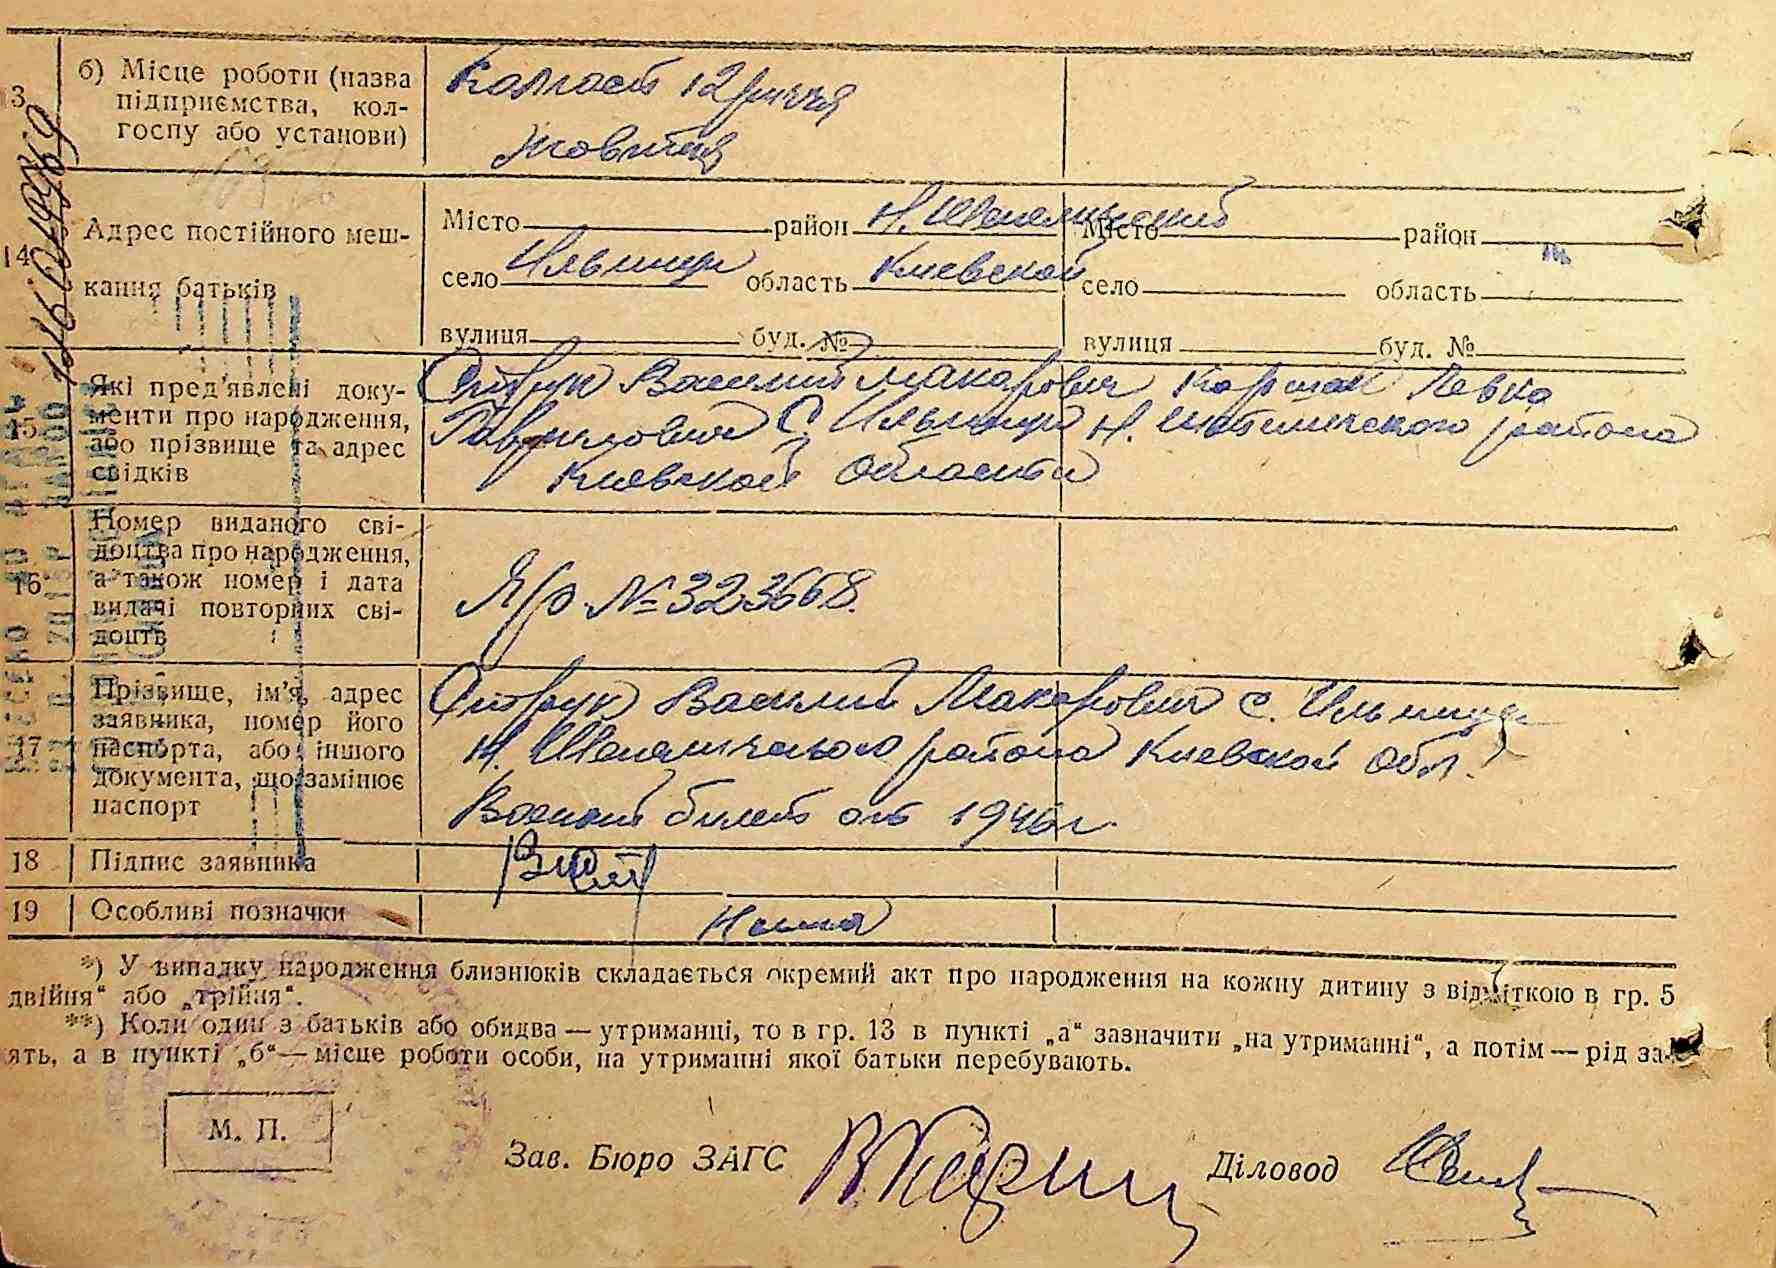 13 б) Місце роботи (назва
підприємства, кол-
госпу або установи)
Колгосп 12 річчя
Жовтня
14 Адрес постійного меш-
кання батьків
Місто район Н. Шепеличский
село Ильинцы область Киевской
вулиця буд. №
Місто район
село область
вулиця буд. №
15 Які пред'явлені доку-
менти про народження,
або прізвище та адрес
свідків
Василий Макарович Левко
Гаврилович С. Ильинцы Н. Шепеличского района
Киевской области
16 Номер виданого сві-
доцтва про народження,
а також номер і дата
видачі повторних сві-
доцтв
№ 323668.
17 Прізвище, ім'я, адрес
заявника, номер його
паспорта, або іншого
документа, що замінює
паспорт
Василий Макарович с. Ильинцы
Н. Шепеличского района Киевской обл.
Военный билет от 1946 г.
18 Підпис заявника
19 Особливі позначки
Нема
*) У випадку народження близнюків складається окремий акт про народження на кожну дитину з відміткою в гр. 5
двійня“ або „трійня“.
**) Коли один з батьків або обидва — утриманці, то в гр. 13 в пункті „а“ зазначити „на утриманні“, а потім — рід за-
ять, а в пункті „б“ — місце роботи особи, на утриманні якої батьки перебувають.
М. П.
Зав. Бюро ЗАГС
Діловод